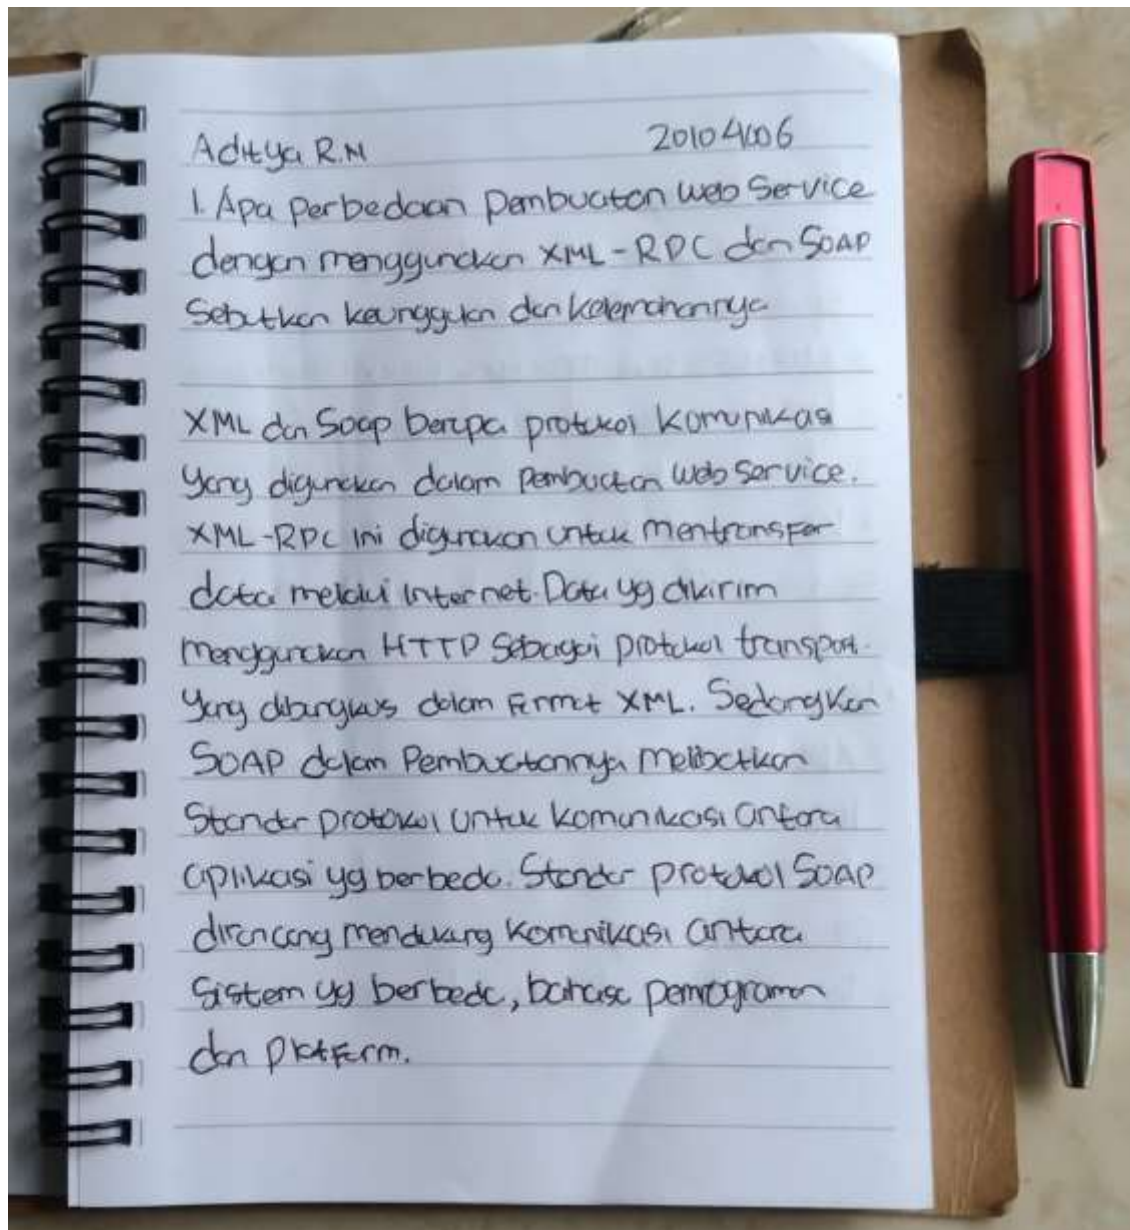 Aditya R.M 20104006
1. Apa perbedaan pembuatan web service
dengan menggunakan XML-RPC dan SOAP
Sebutkan keunggulan dan kelemahannya
XML dan Soap berupa protokol komunikasi
yang digunakan dalam pembuatan web service.
XML-RPC ini digunakan untuk mentransfer
data melalui internet. Data yg dikirim
menggunakan HTTP sebagai protokol transport.
yang dibungkus dalam format XML. Sedangkan
SOAP dalam Pembuatannya melibatkan
Standar protokol untuk komunikasi antara
aplikasi yg berbeda. Standar protokol SOAP
dirancang mendukung komunikasi antara
Sistem yg berbeda, bahasa pemrograman
dan Platform.